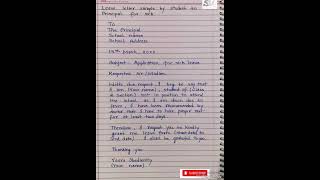 Leave letter sample by student to
Principal for sick
To
The Principal
School name
School Address
15th March, 20XX
Subject - Application for sick leave
Respected Sir/Madam
With due respect I beg to say that
I am (Your name), student of (Class
& section) not in position to attend
the school as I am
fever. I have been recommended by
doctor that I have to take proper rest for
at least two days.
Therefore, I request you to kindly
grant me leave from (start date) to
(End date). I shall be grateful to you.
Thanking you
Yours Obediently
(Your name).
SUBSCRIBE